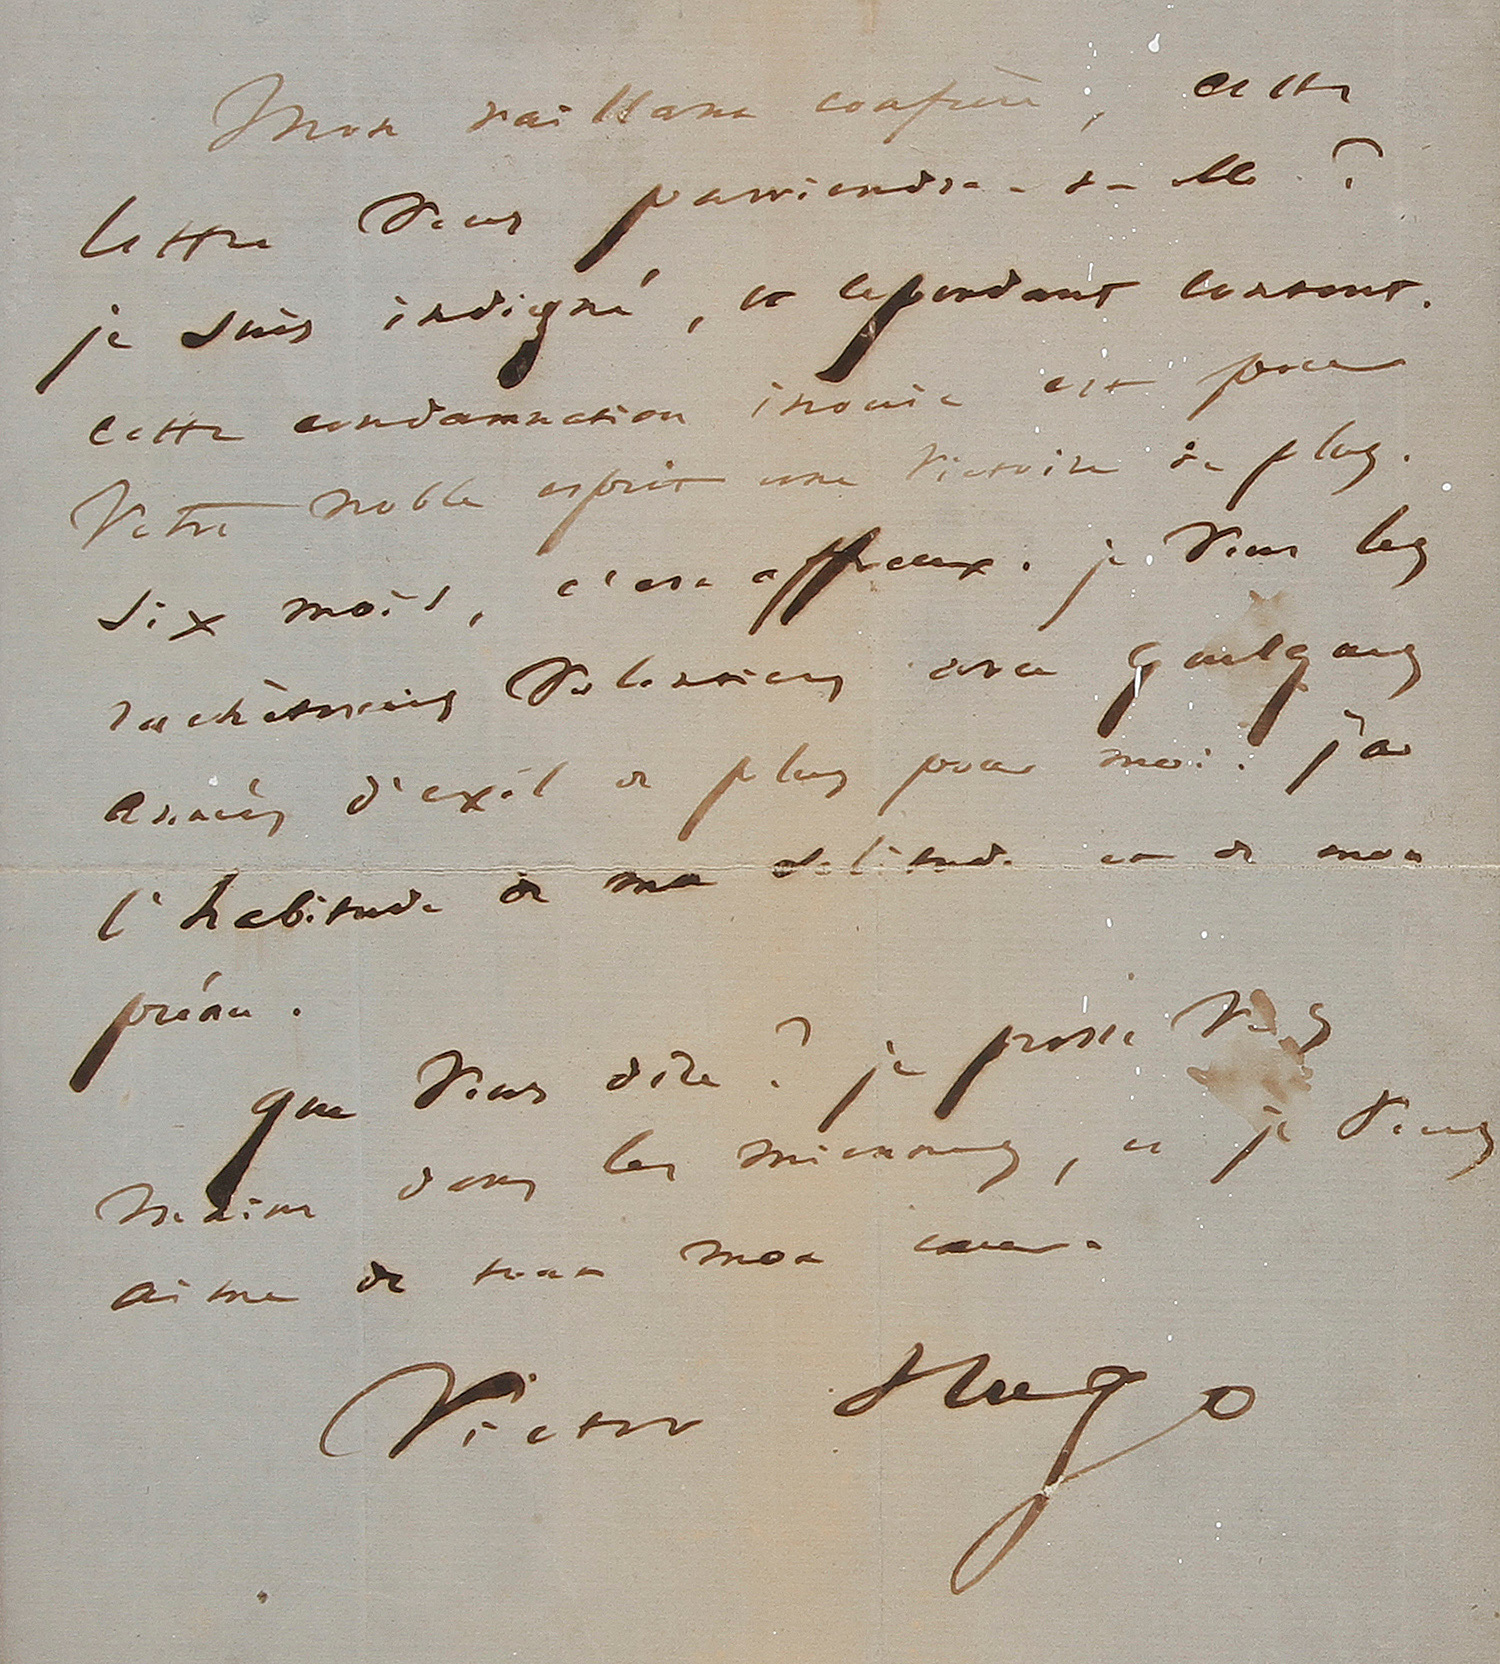 Mon vaillant confrère, cette
lettre vous parviendra-t-elle ?
je suis indigné, et cependant content.
cette condamnation inouïe est pour
votre noble esprit une victoire de plus.
Six mois, c'est affreux. je vous les
rachèterais volontiers avec quelques
années d'exil de plus pour moi. j'ai
l'habitude de ma solitude et de mon
préau.
que vous dire ? je presse vos
mains dans les miennes, et je vous
aime de tout mon cœur.
Victor Hugo